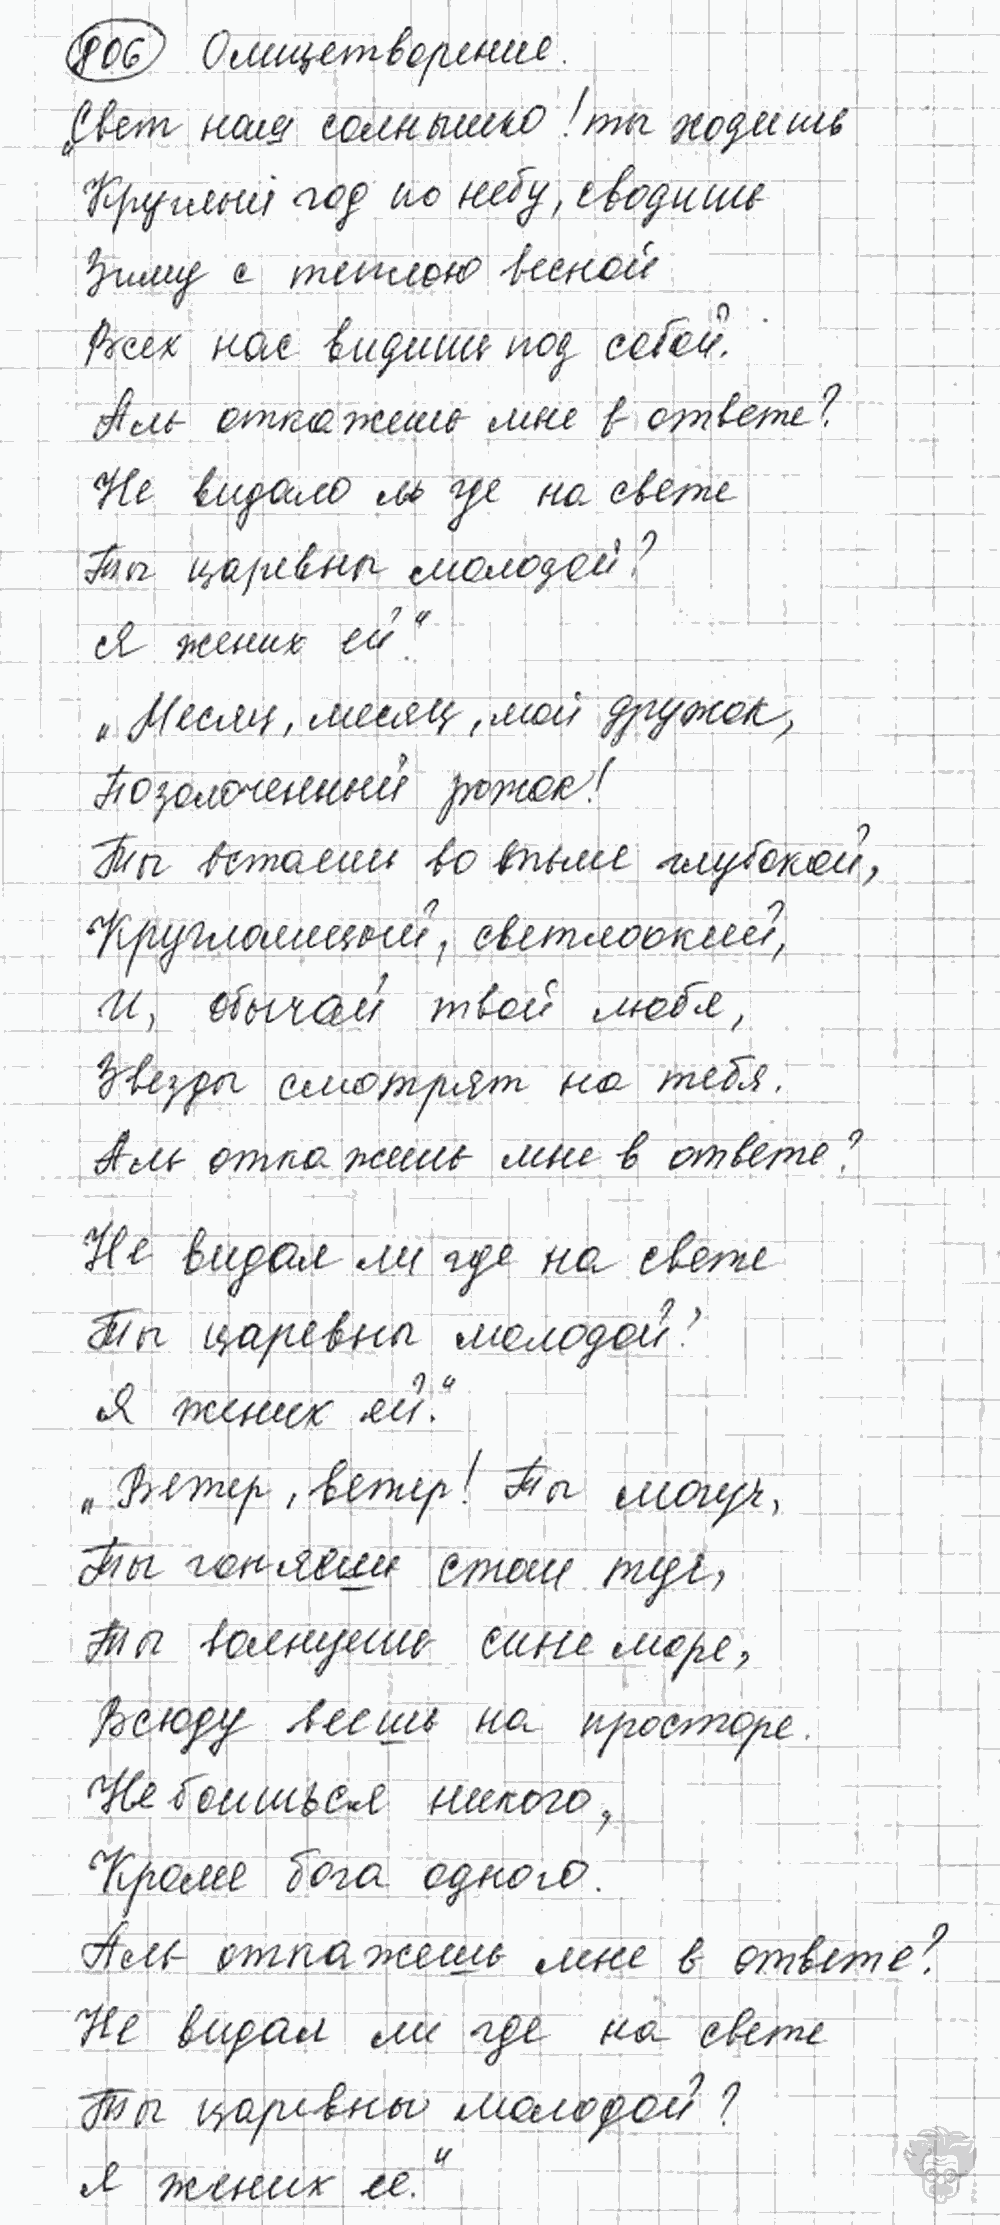 806 Олицетворение.
„Свет наш солнышко! ты ходишь
Круглый год по небу, сводишь
Зиму с теплою весной
Всех нас видишь под собой.
Аль откажешь мне в ответе?
Не видало ль где на свете
Ты царевны молодой?
Я жених ей.“
„Месяц, месяц, мой дружок,
Позолоченный рожок!
Ты встаешь во тьме глубокой,
Круглолицый, светлоокий,
И, обычай твой любя,
Звезды смотрят на тебя.
Аль откажешь мне в ответе?
Не видал ли где на свете
Ты царевны молодой?
Я жених ей.“
„Ветер, ветер! Ты могуч,
Ты гоняешь стаи туч,
Ты волнуешь сине море,
Всюду веешь на просторе.
Не боишься никого,
Кроме бога одного.
Аль откажешь мне в ответе?
Не видал ли где на свете
Ты царевны молодой?
Я жених ее.“